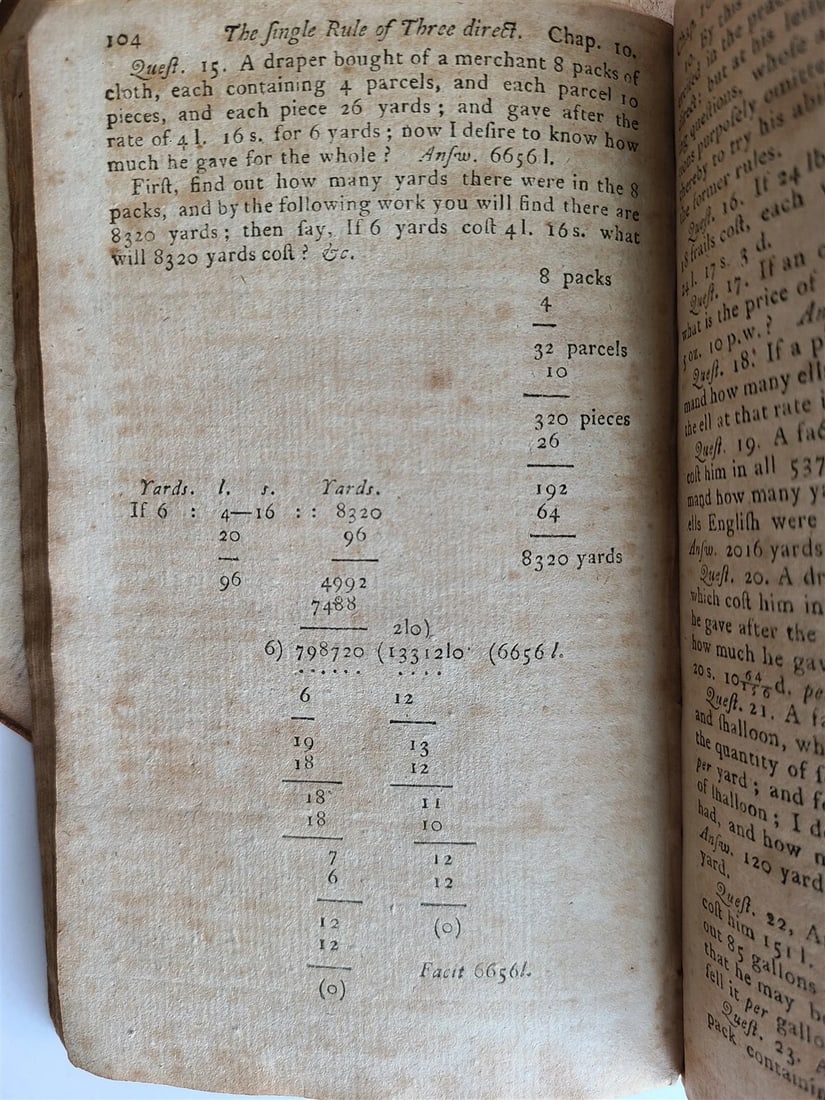 104 The ſingle Rule of Three direct. Chap. 10.
Queſt. 15. A draper bought of a merchant 8 packs of
cloth, each containing 4 parcels, and each parcel 10
pieces, and each piece 26 yards; and gave after the
rate of 4 l. 16 s. for 6 yards; now I deſire to know how
much he gave for the whole? Anſw. 6656 l.
Firſt, find out how many yards there were in the 8
packs, and by the following work you will find there are
8320 yards; then ſay, If 6 yards coſt 4 l. 16 s. what
will 8320 yards coſt? &c.
8 packs
4
32 parcels
10
320 pieces
26
192
64
8320 yards
Yards. l. s. Yards.
If 6 : 4—16 :: 8320
20 96
96 4992
7488
2|0)
6) 798720 (13312|0 (6656 l.
6 12
19 13
18 12
18 11
18 10
7 12
6 12
12 (0)
12
(0)
Facit 6656 l.
Queſt. 16. If 24 lb
ſrails coſt, each
l. 17 s. 3 d.
Queſt. 17. If an
what is the price of
10 p.w.?
Queſt. 18. If a p
mand how many ell
the ell at that rate i
Queſt. 19. A fac
coſt him in all 537
mand how many y
ells Engliſh were
Anſw. 2016 yards
Queſt. 20. A dr
which coſt him in
he gave after the
how much he gav
20 s. 10 d. pe
Queſt. 21. A f
and ſhalloon, wh
the quantity of ſ
per yard; and f
of ſhalloon; I d
had, and how m
Anſw. 120 yard
yard.
Queſt. 22, A
coſt him 151 l.
out 85 gallons
that he may b
ſell it per gallo
Queſt. 23. A
pack containin